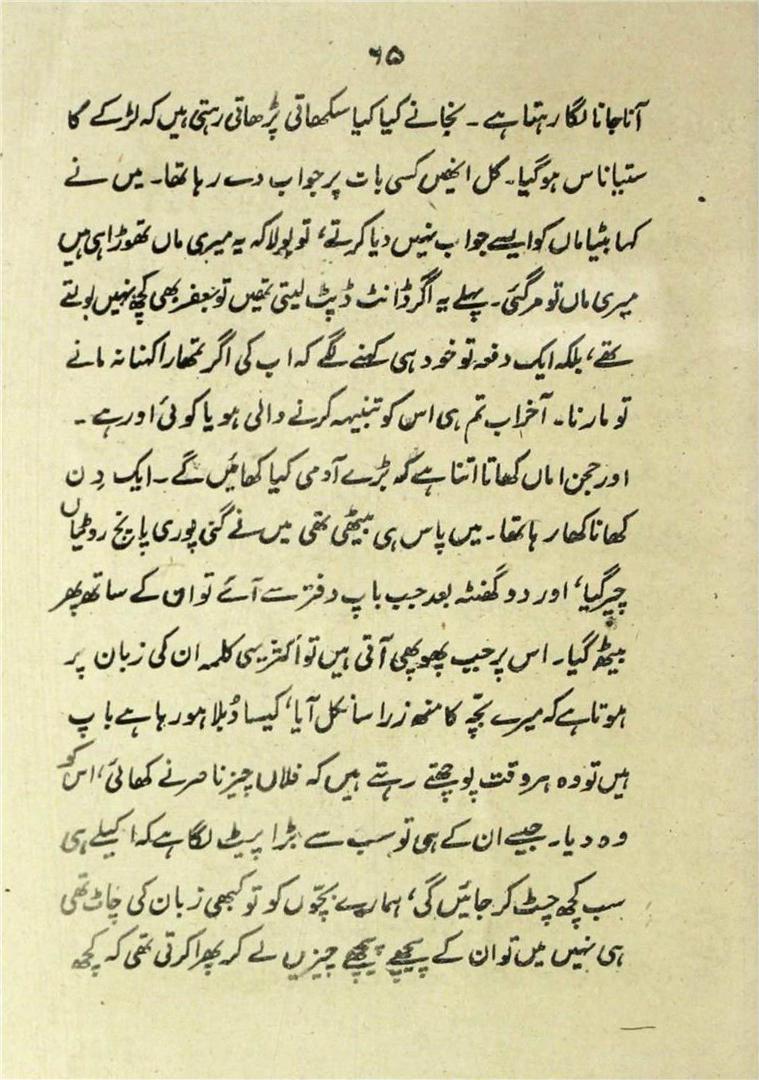 ۶۵
آنا جانا لگا رہتا ہے ۔ نجانے کیا کیا سکھاتی پڑھاتی رہتی ہیں کہ لڑکے کا
ستیاناس ہوگیا۔ کل انھیں کسی بات پر جواب دے رہا تھا۔ میں نے
کہا بیٹیا ماں کو ایسے جواب نہیں دیا کرتے، تو بولا کہ یہ میری ماں تھوڑا ہی ہیں
میری ماں تو مرگئی۔ پہلے یہ اگر ڈانٹ ڈپٹ لیتی تھیں تو جعفر بھی کچھ نہیں بولتے
تھے، بلکہ ایک دفعہ تو خود ہی کہنے لگے کہ اب کی اگر تمھارا کہنا نہ مانے
تو مارنا۔ آخر اب تم ہی اس کو تنبیہہ کرنے والی ہو یا کوئی اور ہے ۔
اور حجن اماں کھاتا اتنا ہے کہ بڑے آدمی کیا کھائیں گے ۔ ایک دن
کھانا کھا رہا تھا۔ میں پاس ہی بیٹھی تھی میں نے گنی پوری پانچ روٹیاں
چرگیا، اور دو گھنٹہ بعد جب باپ دفتر سے آئے تو ان کے ساتھ پھر
بیٹھ گیا۔ اس پر جب پھوپھی آتی ہیں تو اکثر یہی کلمہ ان کی زبان پر
ہوتا ہے کہ میرے بچّہ کا منھ زرا سا نکل آیا، کیسا دُبلا ہو رہا ہے باپ
ہیں تو وہ ہر وقت پوچھتے رہتے ہیں کہ فلاں چیز ناصر نے کھائی، اس کو
وہ دیا۔ جیسے ان کے ہی تو سب سے بڑا پیٹ لگا ہے کہ اکیلے ہی
سب کچھ چٹ کر جائیں گی، ہمارے بچّوں کو تو کبھی زبان کی چاٹ تھی
ہی نہیں میں تو ان کے پیچھے پیچھے چیزیں لے کر پھرا کرتی تھی کہ کچھ